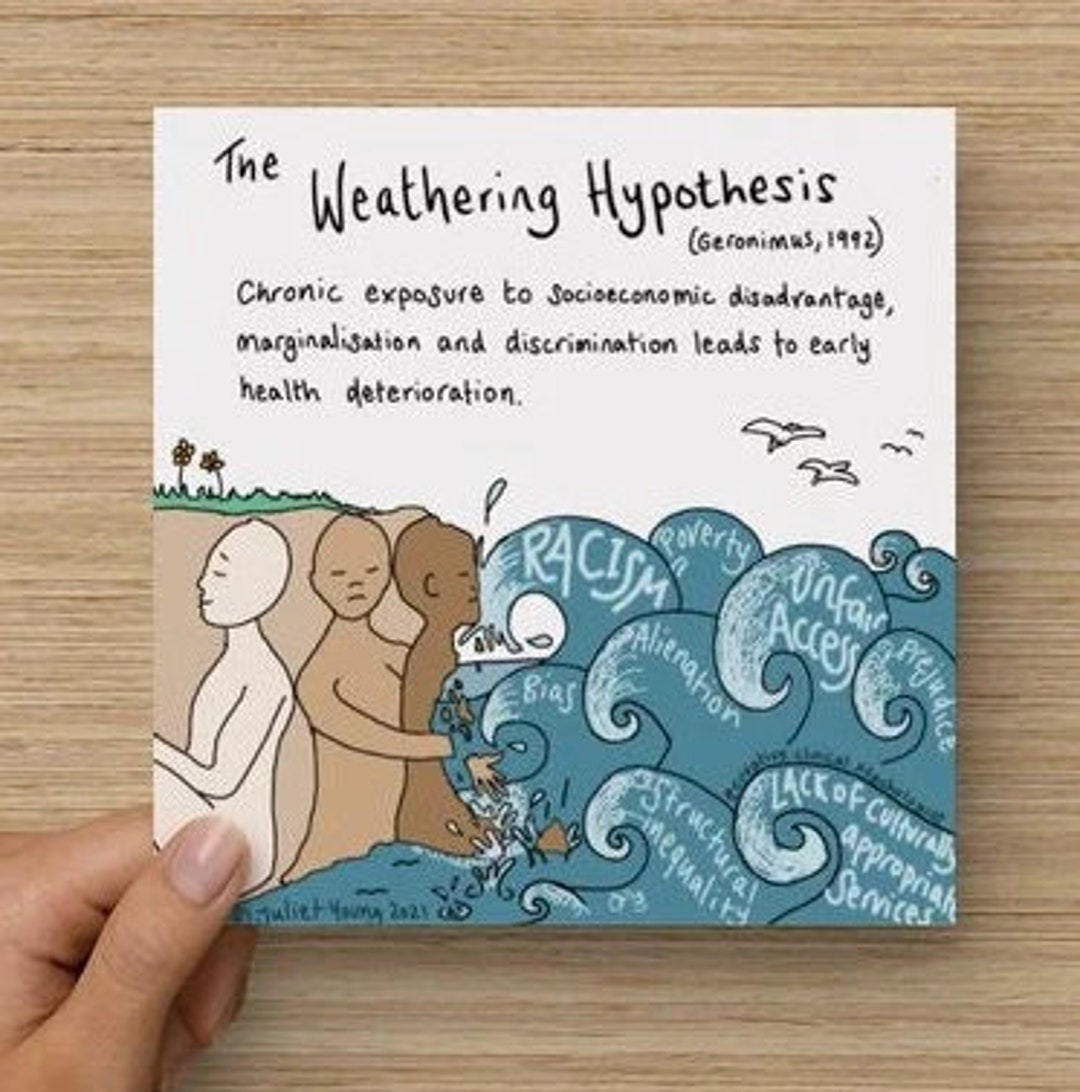 The
Weathering Hypothesis
(Geronimus, 1992)
Chronic exposure to socioeconomic disadvantage,
marginalisation and discrimination leads to early
health deterioration.
RACISM
Poverty
Unfair
Access
Alienation
Prejudice
Bias
Structural
inequality
LACK OF Culturally
appropriate
Services
Juliet Young 2021